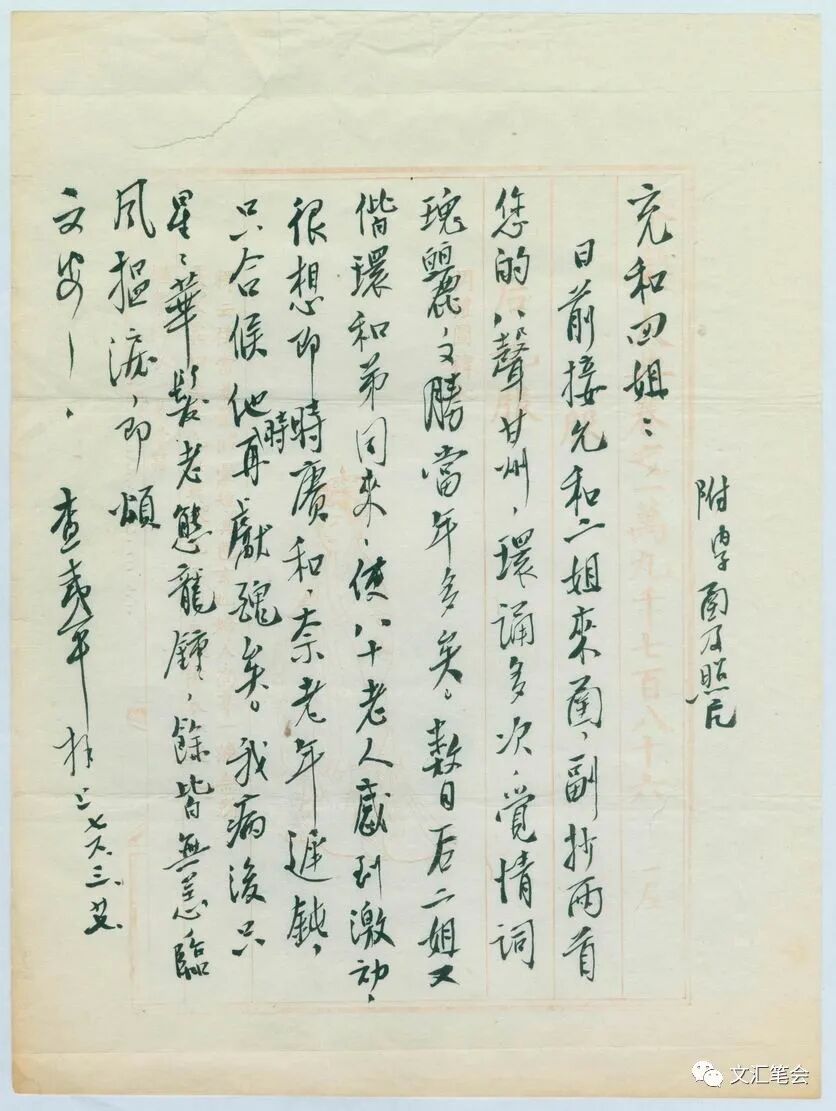 附函及照片
充和四姐：
日前接允和二姐來函，副抄兩首
您的八聲甘州，環誦多次，覺情詞
瑰麗，又勝當年多矣。數日后二姐又
偕環和弟同來，使八十老人感到激动，
很想即時賡和，奈老年遲鈍，
只合候他時再獻醜矣。我病後只
星〻華髮老態龍鍾，餘皆無恙臨
風搵淚，即頌
文安！
查夷平拜上七六.三.廿
卷之一萬九千七百八十六
文汇笔会